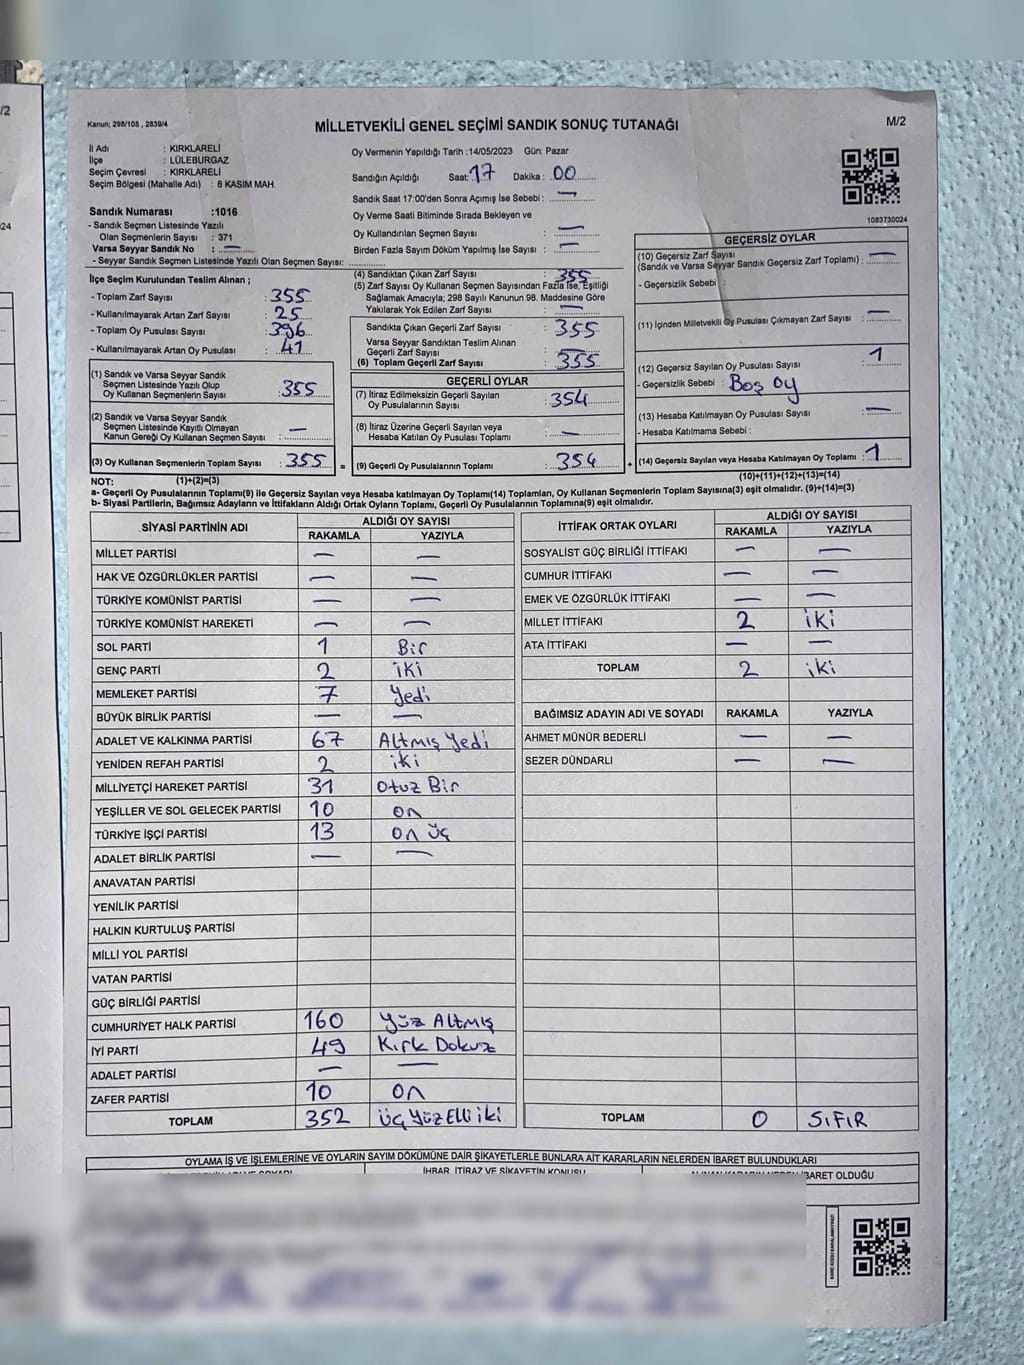 /2
24
Kanun; 298/105 , 2839/4
MİLLETVEKİLİ GENEL SEÇİMİ SANDIK SONUÇ TUTANAĞI
M/2
İl Adı : KIRKLARELİ
İlçe : LÜLEBURGAZ
Seçim Çevresi : KIRKLARELİ
Seçim Bölgesi (Mahalle Adı) : 8 KASIM MAH.
Sandık Numarası :1016
- Sandık Seçmen Listesinde Yazılı
Olan Seçmenlerin Sayısı : 371
Varsa Seyyar Sandık No : —
- Seyyar Sandık Seçmen Listesinde Yazılı Olan Seçmen Sayısı:
Oy Vermenin Yapıldığı Tarih :14/05/2023 Gün: Pazar
Sandığın Açıldığı Saat: 17 Dakika : 00
Sandık Saat 17:00'den Sonra Açımış İse Sebebi : —
Oy Verme Saati Bitiminde Sırada Bekleyen ve
Oy Kullandırılan Seçmen Sayısı : —
Birden Fazla Sayım Döküm Yapılmış İse Sayısı : —
1083730024
İlçe Seçim Kurulundan Teslim Alınan ;
- Toplam Zarf Sayısı : 355
- Kullanılmayarak Artan Zarf Sayısı : 25
- Toplam Oy Pusulası Sayısı : 396
- Kullanılmayarak Artan Oy Pusulası : 41
(1) Sandık ve Varsa Seyyar Sandık
Seçmen Listesinde Yazılı Olup
Oy Kullanan Seçmenlerin Sayısı : 355
(2) Sandık ve Varsa Seyyar Sandık
Seçmen Listesinde Kayıtlı Olmayan
Kanun Gereği Oy Kullanan Seçmen Sayısı : —
(3) Oy Kullanan Seçmenlerin Toplam Sayısı : 355
(4) Sandıktan Çıkan Zarf Sayısı : 355
(5) Zarf Sayısı Oy Kullanan Seçmen Sayısından Fazla İse, Eşitliği
Sağlamak Amacıyla; 298 Sayılı Kanunun 98. Maddesine Göre
Yakılarak Yok Edilen Zarf Sayısı : —
Sandıkta Çıkan Geçerli Zarf Sayısı : 355
Varsa Seyyar Sandıktan Teslim Alınan
Geçerli Zarf Sayısı : —
(6) Toplam Geçerli Zarf Sayısı : 355
GEÇERLİ OYLAR
(7) İtiraz Edilmeksizin Geçerli Sayılan
Oy Pusulalarının Sayısı : 354
(8) İtiraz Üzerine Geçerli Sayılan veya
Hesaba Katılan Oy Pusulası Toplamı : —
= (9) Geçerli Oy Pusulalarının Toplamı : 354 +
GEÇERSİZ OYLAR
(10) Geçersiz Zarf Sayısı
(Sandık ve Varsa Seyyar Sandık Geçersiz Zarf Toplamı) : —
- Geçersizlik Sebebi :
(11) İçinden Milletvekili Oy Pusulası Çıkmayan Zarf Sayısı : —
(12) Geçersiz Sayılan Oy Pusulası Sayısı : 1
- Geçersizlik Sebebi : Boş oy
(13) Hesaba Katılmayan Oy Pusulası Sayısı : —
- Hesaba Katılmama Sebebi :
(14) Geçersiz Sayılan veya Hesaba Katılmayan Oy Toplamı : 1
NOT: (1)+(2)=(3) (10)+(11)+(12)+(13)=(14)
a- Geçerli Oy Pusulalarının Toplamı(9) ile Geçersiz Sayılan veya Hesaba katılmayan Oy Toplamı(14) Toplamları, Oy Kullanan Seçmenlerin Toplam Sayısına(3) eşit olmalıdır. (9)+(14)=(3)
b- Siyasi Partilerin, Bağımsız Adayların ve İttifakların Aldığı Ortak Oyların Toplamı, Geçerli Oy Pusulalarının Toplamına(9) eşit olmalıdır.
SİYASİ PARTİNİN ADI ALDIĞI OY SAYISI
RAKAMLA YAZIYLA
MİLLET PARTİSİ — —
HAK VE ÖZGÜRLÜKLER PARTİSİ — —
TÜRKİYE KOMÜNİST PARTİSİ — —
TÜRKİYE KOMÜNİST HAREKETİ — —
SOL PARTİ 1 Bir
GENÇ PARTİ 2 iki
MEMLEKET PARTİSİ 7 Yedi
BÜYÜK BİRLİK PARTİSİ — —
ADALET VE KALKINMA PARTİSİ 67 Altmış Yedi
YENİDEN REFAH PARTİSİ 2 iki
MİLLİYETÇİ HAREKET PARTİSİ 31 Otuz Bir
YEŞİLLER VE SOL GELECEK PARTİSİ 10 on
TÜRKİYE İŞÇİ PARTİSİ 13 on üç
ADALET BİRLİK PARTİSİ — —
ANAVATAN PARTİSİ
YENİLİK PARTİSİ
HALKIN KURTULUŞ PARTİSİ
MİLLİ YOL PARTİSİ
VATAN PARTİSİ
GÜÇ BİRLİĞİ PARTİSİ
CUMHURİYET HALK PARTİSİ 160 Yüz Altmış
İYİ PARTİ 49 Kırk Dokuz
ADALET PARTİSİ — —
ZAFER PARTİSİ 10 ON
TOPLAM 352 ÜÇ YÜZ ELLİ İKİ
İTTİFAK ORTAK OYLARI ALDIĞI OY SAYISI
RAKAMLA YAZIYLA
SOSYALİST GÜÇ BİRLİĞİ İTTİFAKI — —
CUMHUR İTTİFAKI — —
EMEK VE ÖZGÜRLÜK İTTİFAKI — —
MİLLET İTTİFAKI 2 iki
ATA İTTİFAKI — —
TOPLAM 2 iki
BAĞIMSIZ ADAYIN ADI VE SOYADI RAKAMLA YAZIYLA
AHMET MÜNÜR BEDERLİ — —
SEZER DÜNDARLI — —
TOPLAM 0 SIFIR
OYLAMA İŞ VE İŞLEMLERİNE VE OYLARIN SAYIM DÖKÜMÜNE DAİR ŞİKAYETLERLE BUNLARA AİT KARARLARIN NELERDEN İBARET BULUNDUKLARI
İHBAR, İTİRAZ VE ŞİKAYETİN KONUSU
İBARET OLDUĞU